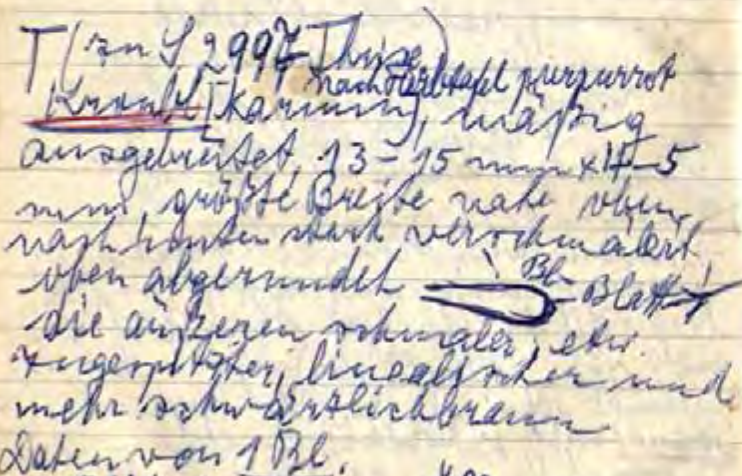 T (zu S 2997 Thise)
nach Farbtafel purpurrot
(karmin), mäßig
ausgebreitet, 13-15 mm x 4-5
mm, größte Breite nahe oben,
nach unten stark verschmälert,
oben abgerundet Bl-Blatt
die äußeren schmaler, etw.
zugespitzter, linealischer und
mehr schwärzlichbraun
Daten von 1 Bl.